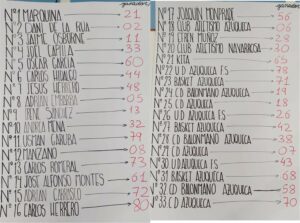 ganador
Nº1 MARQUINA → 21
Nº2 DANI DE LA RUA → 02
Nº3 JAIME OSBORNE → 11
Nº4 RAUL CAPILLA → 33
Nº5 OSCAR GARCIA → 60
Nº6 CARLOS HIDALGO → 44
Nº7 JESUS HERRERO → 48
Nº8 ADRIAN → 05
Nº9 IRENE SANCHEZ → 13
Nº10 ANDREA MENA → 32
Nº11 USMAN GARUBA → 79
Nº12 MANZANO → 08
Nº13 CARLOS ROMERAL → 73
Nº14 JOSE ALFONSO MONTES → 61
Nº15 ADRIAN CARRASCO → 72
Nº16 CARLOS HERRERO → 80
ganador
Nº17 JOAQUIN → 56
Nº18 CLUB ATLETISMO AZUQUECA → 06
Nº19 EREN MUÑOZ → 28
Nº20 CLUB ATLETISMO NAVARROSA → 30
Nº21 KITA → 65
Nº22 U D AZUQUECA FS → 78
Nº23 BASKET AZUQUECA → 71
Nº24 CD BALONMANO AZUQUECA → 19
Nº25 CD BALONMANO AZUQUECA → 20
Nº26 CD AZUQUECA → 10
Nº27 BASKET AZUQUECA → 42
Nº28 CD BALONMANO AZUQUECA → 38
Nº29 CD AZUQUECA → 07
Nº30 UD AZUQUECA FS → 43
Nº31 BASKET AZUQUECA → 68
Nº32 CD BALONMANO AZUQUECA → 58
Nº33 CD AZUQUECA → 70